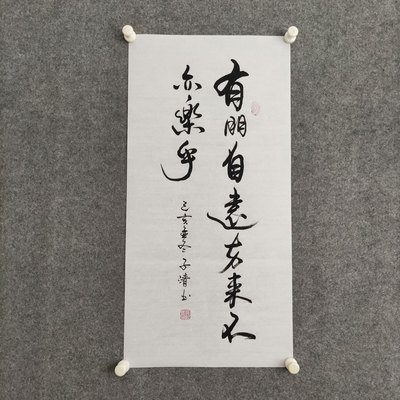 有朋自遠方来不
亦樂乎
己亥年冬子清书